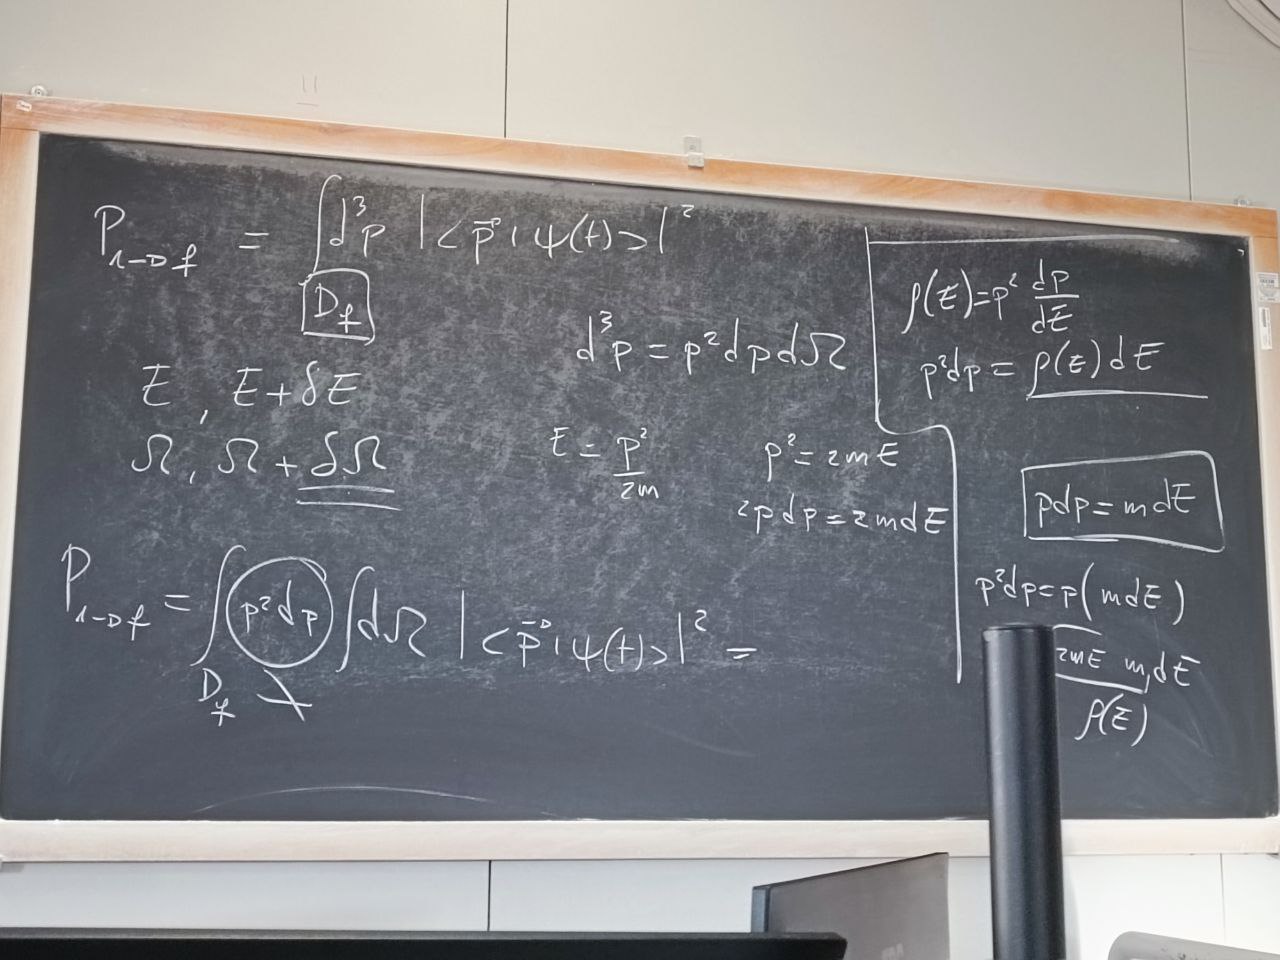 P_{i→f} = ∫_{D_f} d³p |<p⃗|ψ(t)>|²
E, E+δE
Ω, Ω+δΩ
d³p = p²dpdΩ
E = p²/2m
p² = 2mE
2pdp = 2mdE
P_{i→f} = ∫_{D_f} p²dp ∫dΩ |<p⃗|ψ(t)>|² =
ρ(E)=p² dp/dE
p²dp = ρ(E)dE
pdp = mdE
p²dp=p(mdE)
2mE m dE
ρ(E)